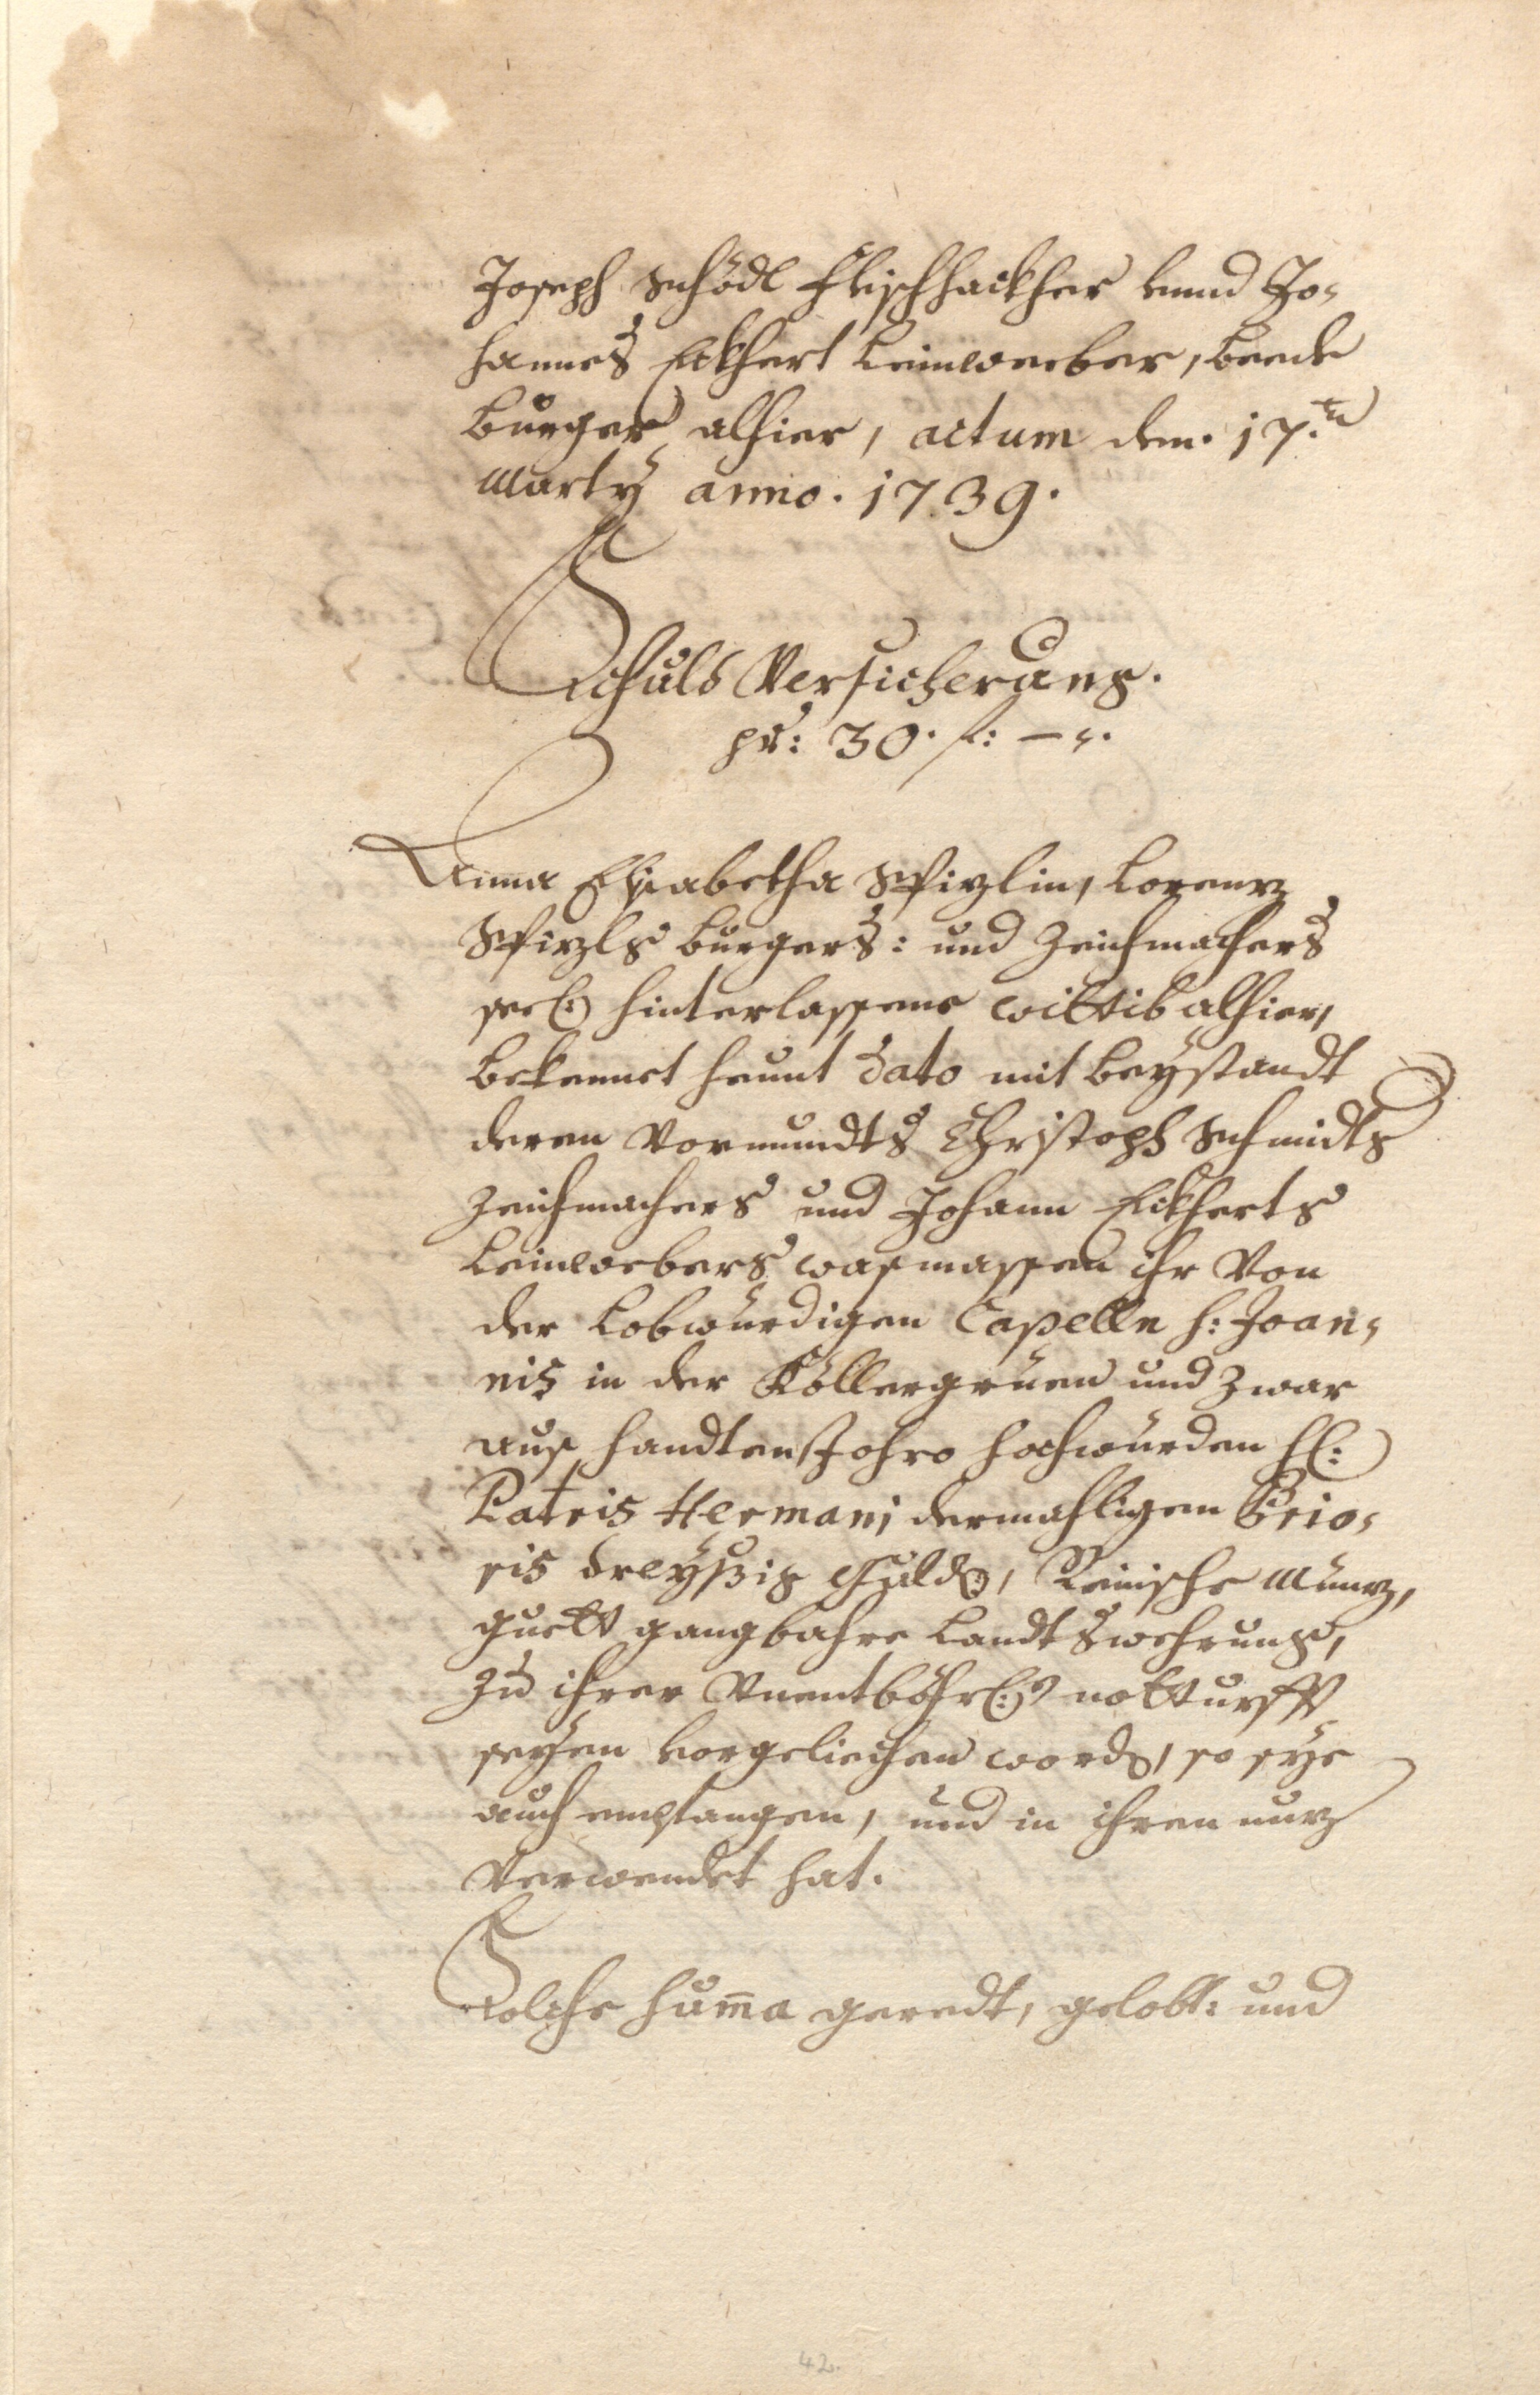 Joseph Schödl Fleischhackher vnnd Jo-
hannes Eckhert Leinweeber, beede
Burger alhier, actum den. 17.ten
Marty anno. 1739.
Schulds Versicherung.
pr: 30. f: — x.
Anna Elisabetha Spizlin, Lorenz
Spizls Burgers: und Zeichmachers
seel: hinterlassene Wittib alhier,
bekennet heunt dato mit beystandt
deren Vormundts Christoph Schmidts
Zeichmachers und Johann Eckherts
Leinwebers wasmassen ihr Von
der Lobwürdigen Capelln S: Joan-
nis in der Köllergrüen und zwar
aus handten Ihro Hochwürden H:
Patris Hermani dermahligen Prio-
ris dreyßig Guld, Reinische Münz,
guett gangbahre Landtswehrung,
zu ihrer Vnentböhrl: notturfft
seyen vorgeliechen word, so sye
auch empfangen, und in ihren nuz
Verwendet hat.
Solche Suma geredt, gelobt: und
42.